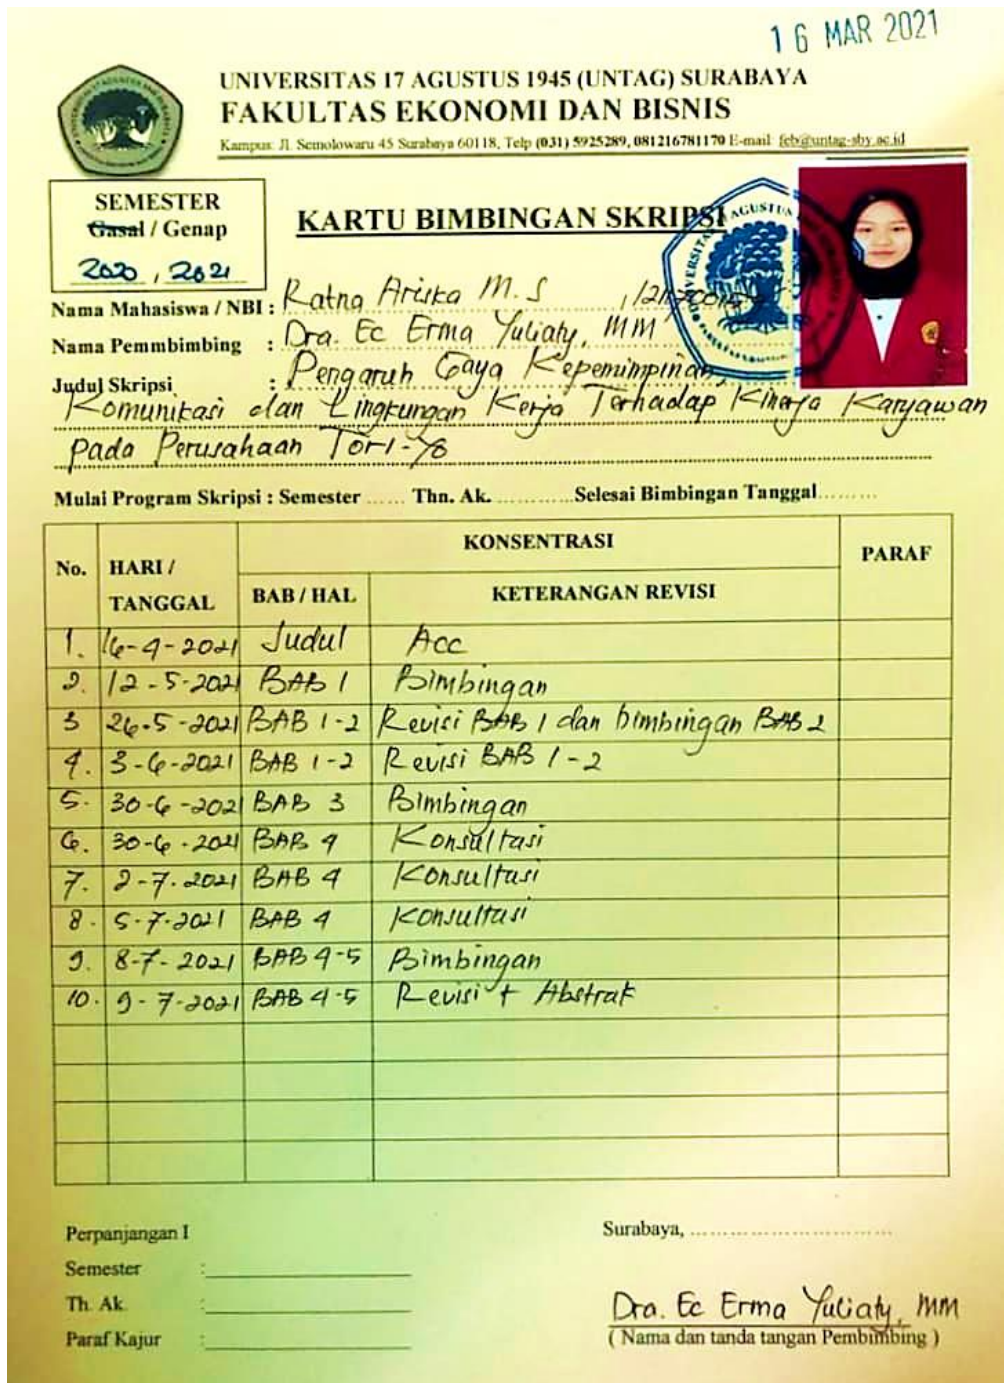 16 MAR 2021
UNIVERSITAS 17 AGUSTUS 1945 (UNTAG) SURABAYA
FAKULTAS EKONOMI DAN BISNIS
Kampus: Jl. Semolowaru 45 Surabaya 60118, Telp (031) 5925289, 081216781170 E-mail: feb@untag-sby.ac.id
SEMESTER
Gasal / Genap
2020 , 2021
KARTU BIMBINGAN SKRIPSI
Nama Mahasiswa / NBI : Ratna Ariska M.S /
Nama Pemmbimbing : Dra. Ec Erma Yuliaty, MM
Judul Skripsi : Pengaruh Gaya Kepemimpinan,
Komunikasi dan Lingkungan Kerja Terhadap Kinerja Karyawan
pada Perusahaan Tori-Yo
Mulai Program Skripsi : Semester ...... Thn. Ak. ........... Selesai Bimbingan Tanggal.........
No. HARI / TANGGAL KONSENTRASI PARAF
BAB / HAL KETERANGAN REVISI
1. 16-4-2021 Judul Acc
2. 12-5-2021 BAB 1 Bimbingan
3 26-5-2021 BAB 1-2 Revisi BAB 1 dan bimbingan BAB 2
4. 3-6-2021 BAB 1-2 Revisi BAB 1-2
5. 30-6-2021 BAB 3 Bimbingan
6. 30-6-2021 BAB 4 Konsultasi
7. 2-7-2021 BAB 4 Konsultasi
8. 5-7-2021 BAB 4 Konsultasi
9. 8-7-2021 BAB 4-5 Bimbingan
10. 9-7-2021 BAB 4-5 Revisi + Abstrak
Perpanjangan I
Semester :
Th. Ak. :
Paraf Kajur :
Surabaya, ..............................
Dra. Ec Erma Yuliaty, MM
( Nama dan tanda tangan Pembimbing )